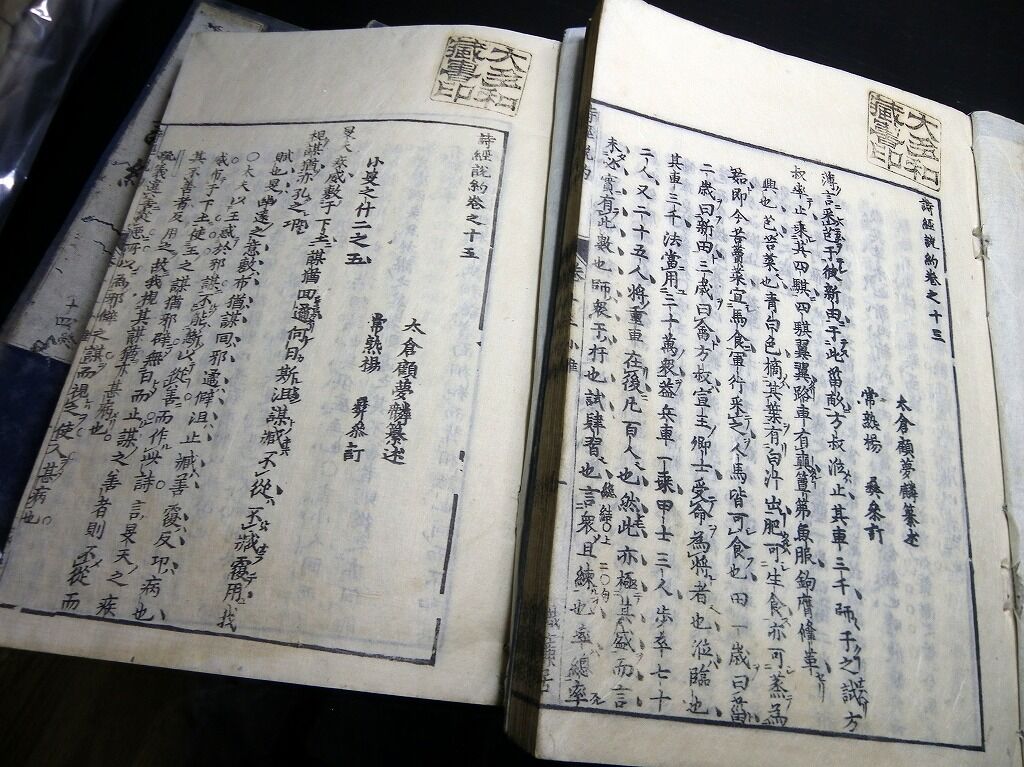 大多和
藏書印
詩經說約卷之十三
太倉顧夢麟纂述
常熟楊彝參訂
薄言采芑于彼新田于此菑畝方叔涖止其車三千師干之試方
叔率止乘其四騏四騏翼翼路車有奭簟茀魚服鉤膺鞗革
興也芑苦菜也青白色摘其葉有白汁出肥可生食亦可蒸為
茹即今苦蕒菜宜馬食軍行采之人馬皆可食也田一歲曰菑
二歲曰新田三歲曰畬方叔宣王卿士受命為將者也涖臨也
其車三千法當用三十萬衆蓋兵車一乘甲士三人步卒七十
二人又二十五人將重車在後凡百人也然此亦極其盛而言
未必實有此數也師衆干扞也試肄習也言衆且練也率總率
大多和
藏書印
詩經說約卷之十五
太倉顧夢麟纂述
常熟楊彝參訂
小旻之什二之五
旻天疾威敷于下土謀猶回遹何日斯沮謀臧不從不臧覆用我
視謀猶亦孔之邛
賦也旻幽遠之意敷布猶謀回邪遹僻沮止臧善覆反邛病也
○大夫以王惑於邪謀不能斷以從善而作此詩言旻天之疾
威布于下土使王之謀猶邪辟無日而止謀之善者則不從而
其不善者反用之故我視其謀猶亦甚病也
十四